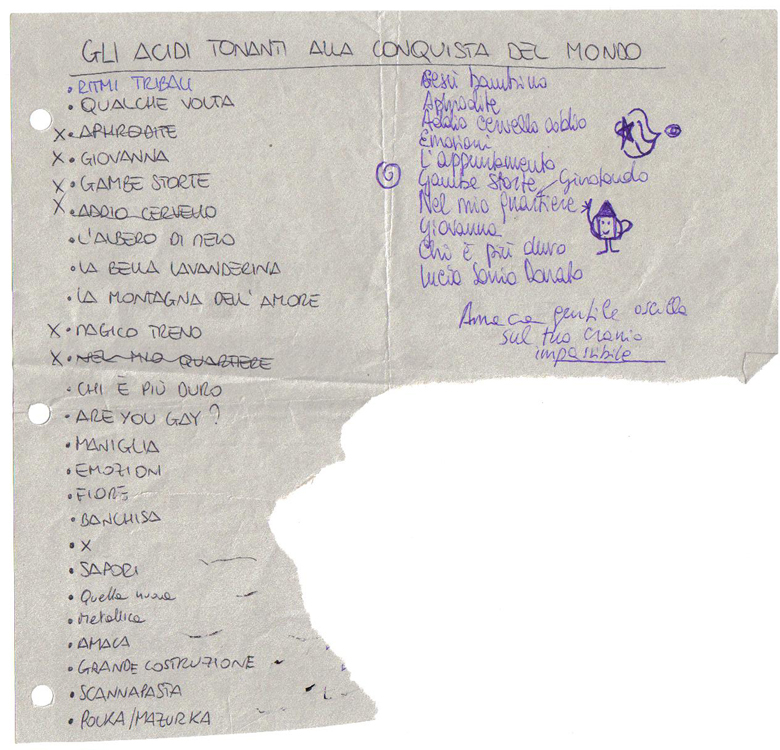 GLI ACIDI TONANTI ALLA CONQUISTA DEL MONDO
• RITMI TRIBALI
• QUALCHE VOLTA
X • APHRODITE
X • GIOVANNA
X • GAMBE STORTE
X • ADDIO CERVELLO
• L'ALBERO DI MELO
• LA BELLA LAVANDERINA
• LA MONTAGNA DELL'AMORE
X • MAGICO TRENO
X • NEL MIO QUARTIERE
• CHI È PIÙ DURO
• ARE YOU GAY?
• MANIGLIA
• EMOZIONI
• FIORE
• BANCHISA
• X
• SAPORI
• Quella nuova
• Metallica
• AMACA
• GRANDE COSTRUZIONE
• SCANNAPASTA
• POLKA/MAZURKA
Gesù bambino
Aphrodite
Addio cervello addio
Emozioni
L'appuntamento
Gambe storte / Girotondo
Nel mio quartiere
Giovanna
Chi è più duro
Lucio Sonio Donato
Amaca gentile oscilla
sul tuo cranio
impassibile